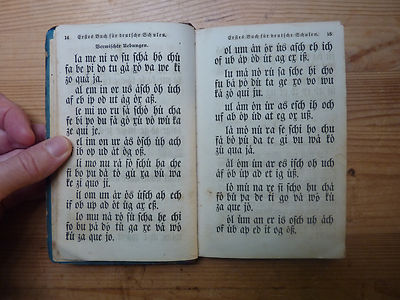 14 Erstes Buch für deutsche Schulen.
Vermischte Uebungen.
la me ni ro su scha bö chü
fa be pi do tu gä xö va we ki
zo qua ja.
al em in or us äsch öh üch
af eb ip od ut äg ör äß.
le mi no ru sä schö hü cha
fe bi po du fä gö xü vo wü ka
ze qui je.
el im on ur äs ösch üh ach
ef ib op ud ät ög oß.
li mo nu rä sö schü ha che
fi bo pu dä tö gü xa vä wa
ke zi quo ji.
il om un är ös üsch ah ech
if ob up äd öt üg ax eß.
lo mu nä rö sü scha he chi
fo bu pä dö tü ga xe vi wö kü
za que jo.
Erstes Buch für deutsche Schulen. 15
ol um än ör üs asch eh ich
of ub äp öd üt ag ex iß.
lu mä nö rü sa sche hi cho
fu bä pö dü ta ge xi vo wu
kä zö qui ju.
ul äm ön ür as esch ih och
uf äb öp üd at eg ix oß.
lä mö nü ra se schi ho chu
fä bö pü da te gi xo vu wä
kö zü qua jä.
äl öm ün ar es isch oh uch
äf öb üp ad et ig üß.
lö mü na re si scho hu chä
fö bü pa de ti go vä wö
kü za que jö.
öl üm an er is osch uh äch
öf üb ap ed it og öß.